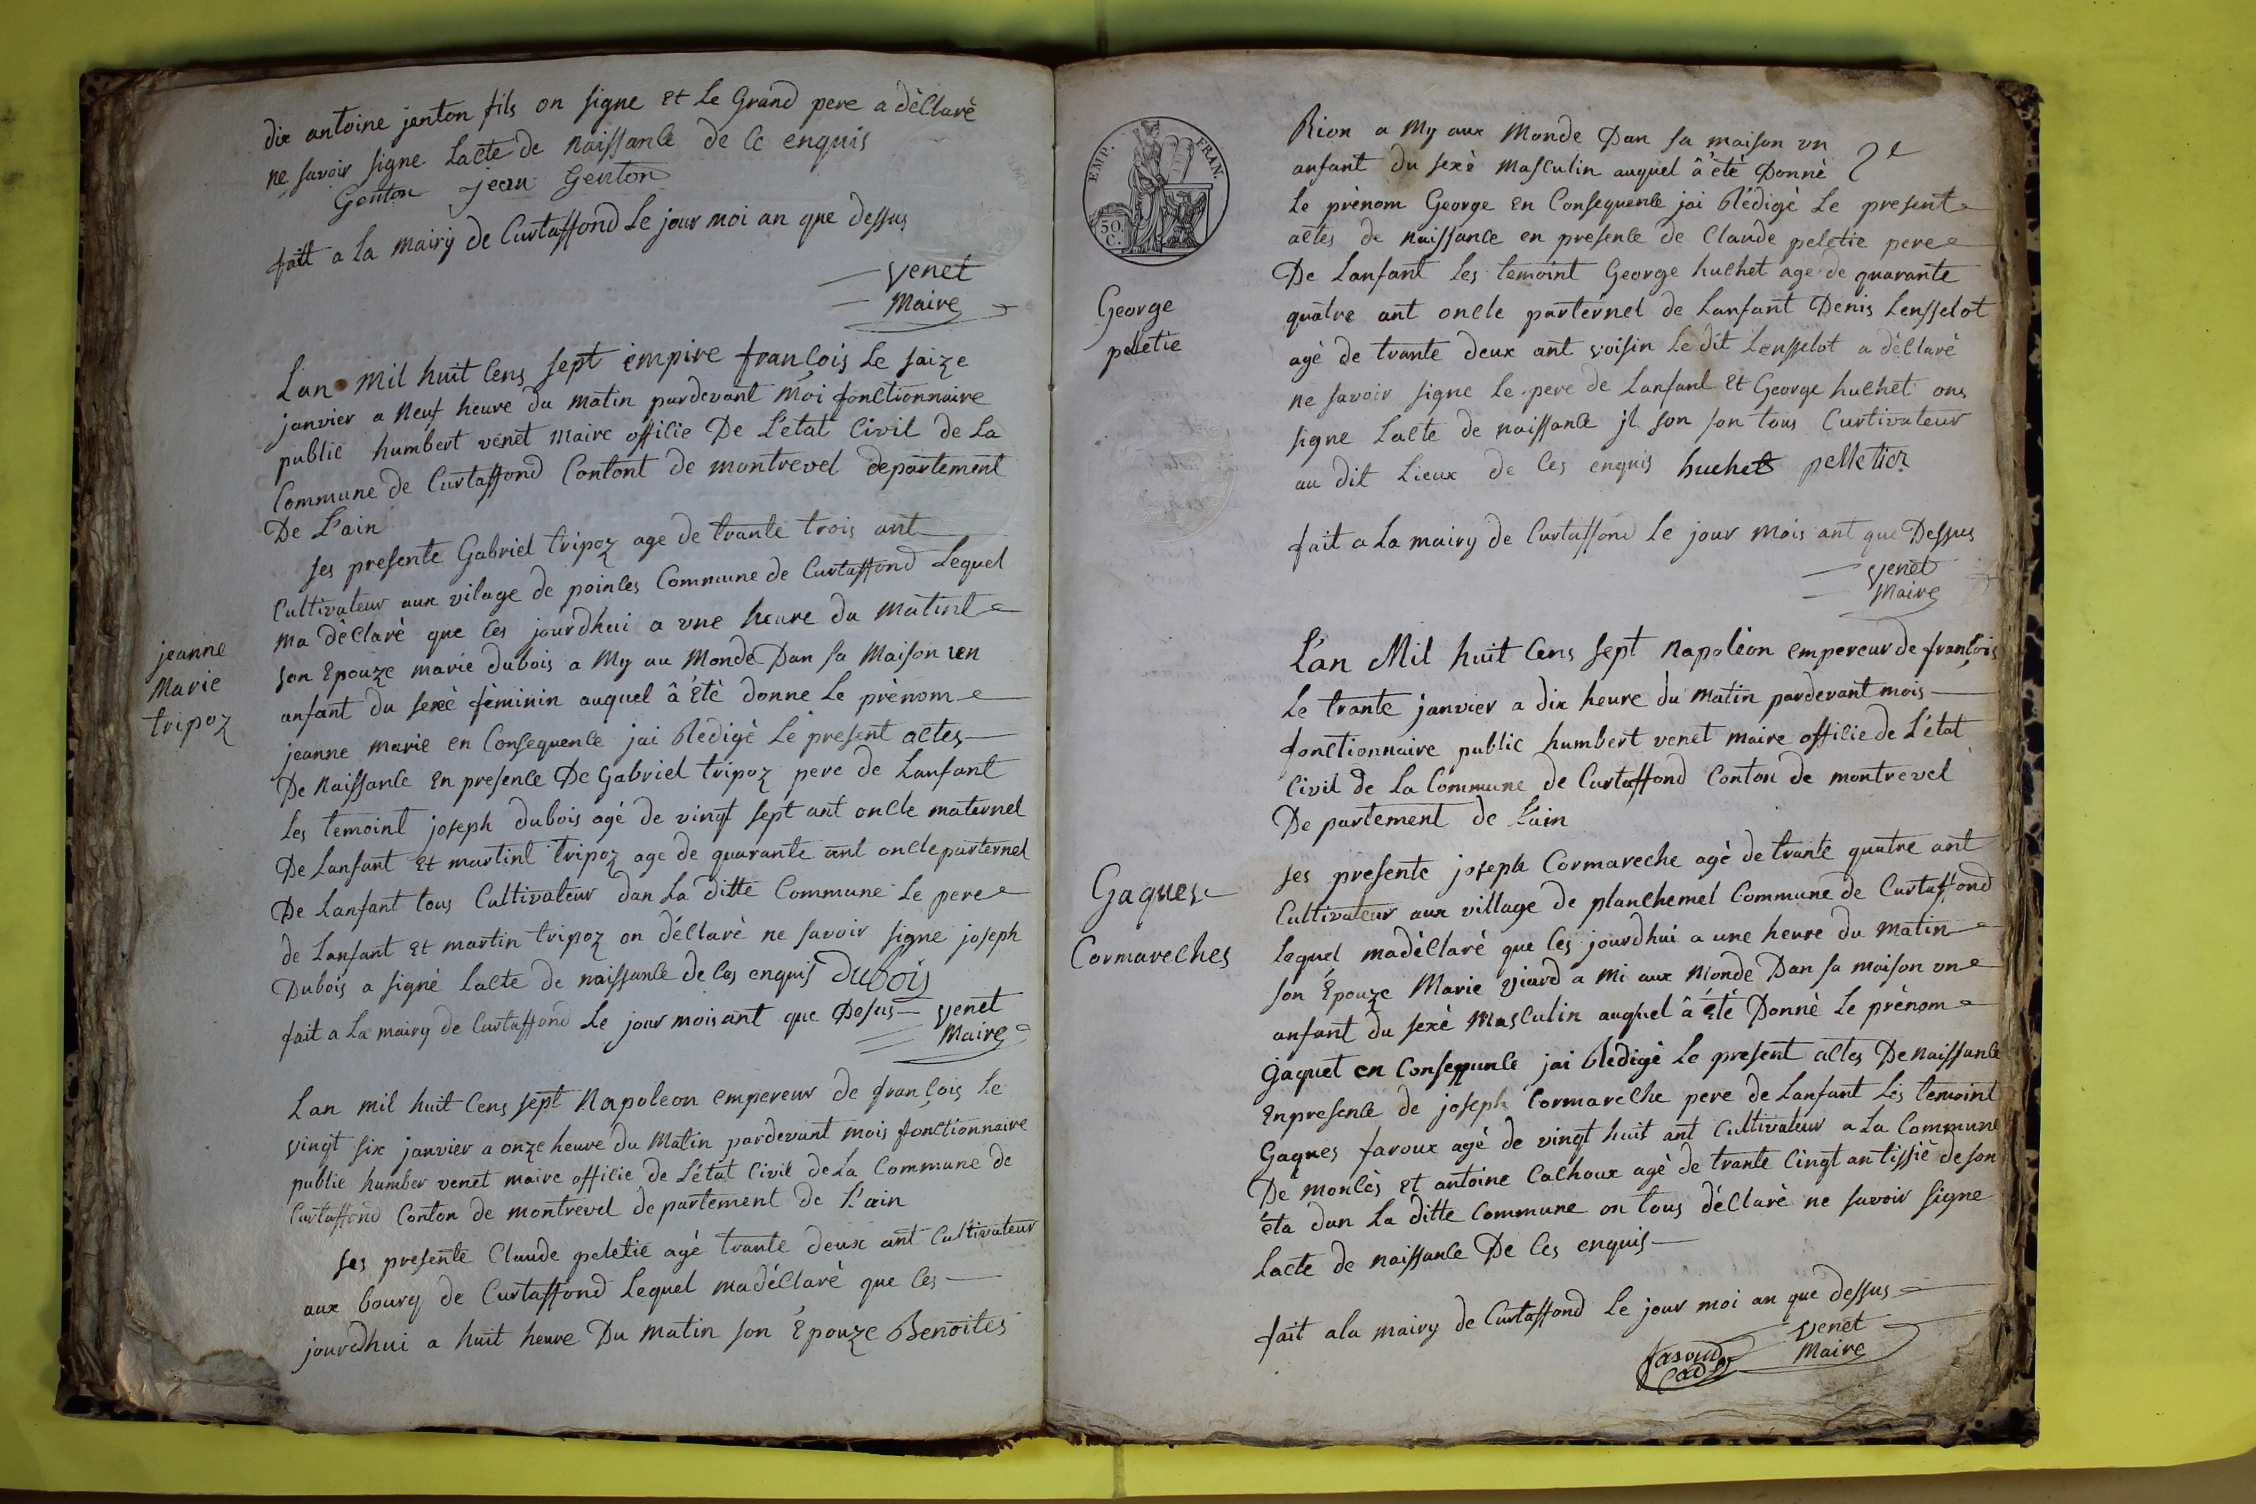 dix antoine jenton fils on signe et Le Grand pere a dèClarè
ne savoir signe Lacte de naissance de Cc enquis
Genton jean Genton
fait a La mairy de Curtaffond Le jour moi an que dessus
venet
Maire
L'an mil huit Cens sept empire françois Le saize
janvier a Neuf heure du matin pardevant Moi fonctionnaire
public humbert venet Maire officie De L'état Civil de La
Commune de Curtaffond Contont de montrevel departement
De L'ain
jeanne
Marie
tripoz
ses presente Gabriel tripoz age de trante trois ant
Cultivateur aux vilage de poinles Commune de Curtaffond Lequel
ma dèClarè que Ces jourdhui a une heure du Matint
son Epouze marie dubois a My au Monde Dan sa Maison un
anfant du sexè fèminin auquel â Etè donne Le prènom
jeanne marie en Consequence jai Rèdigè Le present actes
De Naissance En presence De Gabriel tripoz pere de Lanfant
Les temoint joseph dubois agè de vingt sept ant oncle maternel
De Lanfant Et martint tripoz age de quarante ant oncle parternel
De Lanfant tous Cultivateur dan La ditte Commune Le pere
de Lanfant Et martin tripoz on dèClarè ne savoir signe joseph
Dubois a signè Lacte de naissance de Ces enquis Dubois
fait a La mairy de Curtaffond Le jour mois ant que Desus venet
Maire
Lan mil huit Cens sept Napoleon empereur de françois Le
vingt six janvier a onze heure du Matin pardevant mois fonctionnaire
public humber venet maire officie de L'état Civil de La Commune de
Curtaffond Conton de montrevel departement de L'ain
ses presente Claude peletie agè trante deux ant Cultivateur
aux bourg de Curtaffond Lequel madèClarè que Ces
jourdhui a huit heure Du matin son Epouze Benoites
EMP. FRAN.
50.
C.
Rion a My aux Monde Dan sa maison un
anfant du sexè Masculin auquel â étè Donnè
George
peletie
Le prènom George En Consequence jai Rèdigè Le present
actes de naissance en presence de Claude peletie pere
De Lanfant Les temoint George huchet age de quarante
quatre ant oncle parternel de Lanfant Denis Lensselot
agè de trante deux ant voisin Le dit Lensselot a dèClarè
ne savoir signe Le pere de Lanfant Et George huchet ons
signe Lacte de naissance jl son son tous Curtivateur
au dit Lieux de Ces enquis huchet pelletier
fait a La mairy de Curtaffond Le jour Mois ant que Dessus
venet
Maire
L'an Mil huit Cens sept Napolèon empereur de françois
Le trante janvier a dix heure du matin pardevant mois
fonctionnaire public humbert venet maire officie de L'état
Civil de La Commune de Curtaffond Conton de montrevel
De partement de L'ain
Gaques
Cormareches
ses presente joseph Cormareche agè de trante quatre ant
Cultivateur aux village de planchemel Commune de Curtaffond
Lequel madèClarè que Ces jourdhui a une heure du matin
son Epouze Marie vjard a Mi aux Monde Dan sa maison un
anfant du sexè Masculin auquel â Etè Donnè Le prènom
Gaquet en Consequnle jai Rèdigè Le present actes De naissance
En presence de joseph Cormareche pere de Lanfant Les temoint
Gaques faroux agè de vingt huit ant Cultivateur a La Commune
De monlès Et antoine Cachoux agè de trante Cingt an tissiè de son
èta dan La ditte Commune on tous dèClarè ne savoir signe
Lacte de naissance De Ces enquis
fait a la mairy de Curtaffond Le jour moi an que dessus
venet
Maire